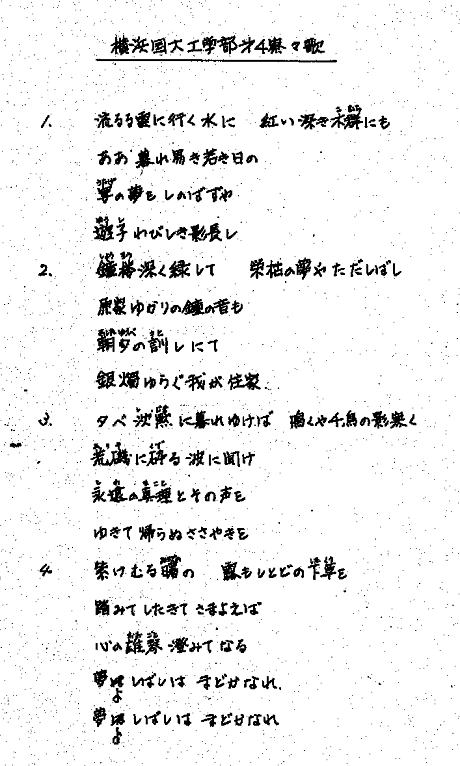 横浜国大工学部第4寮々歌
1. 流るる雲に行く水に 紅い深き木群にも
ああ暮れ易き若き日の
の夢をしのばずや
遊子わびしき影長し
2. 深く緑して 栄枯の夢やただしばし
ゆかりの鐘の音も
朝夕の訓しにて
銀燭ゆらぐ我が住家
3. 夕べ沈黙に暮れゆけば 鳴くや千鳥の影寒く
荒磯に砕る波に聞け
永遠の真理とその声を
ゆきて帰らぬささやきを
4. 紫けむる曙の 露もしとどの草を
踏みてしたきて さまよえば
心の琴 澄みてなる
夢よしばしは まどかなれ
夢よしばしは まどかなれ